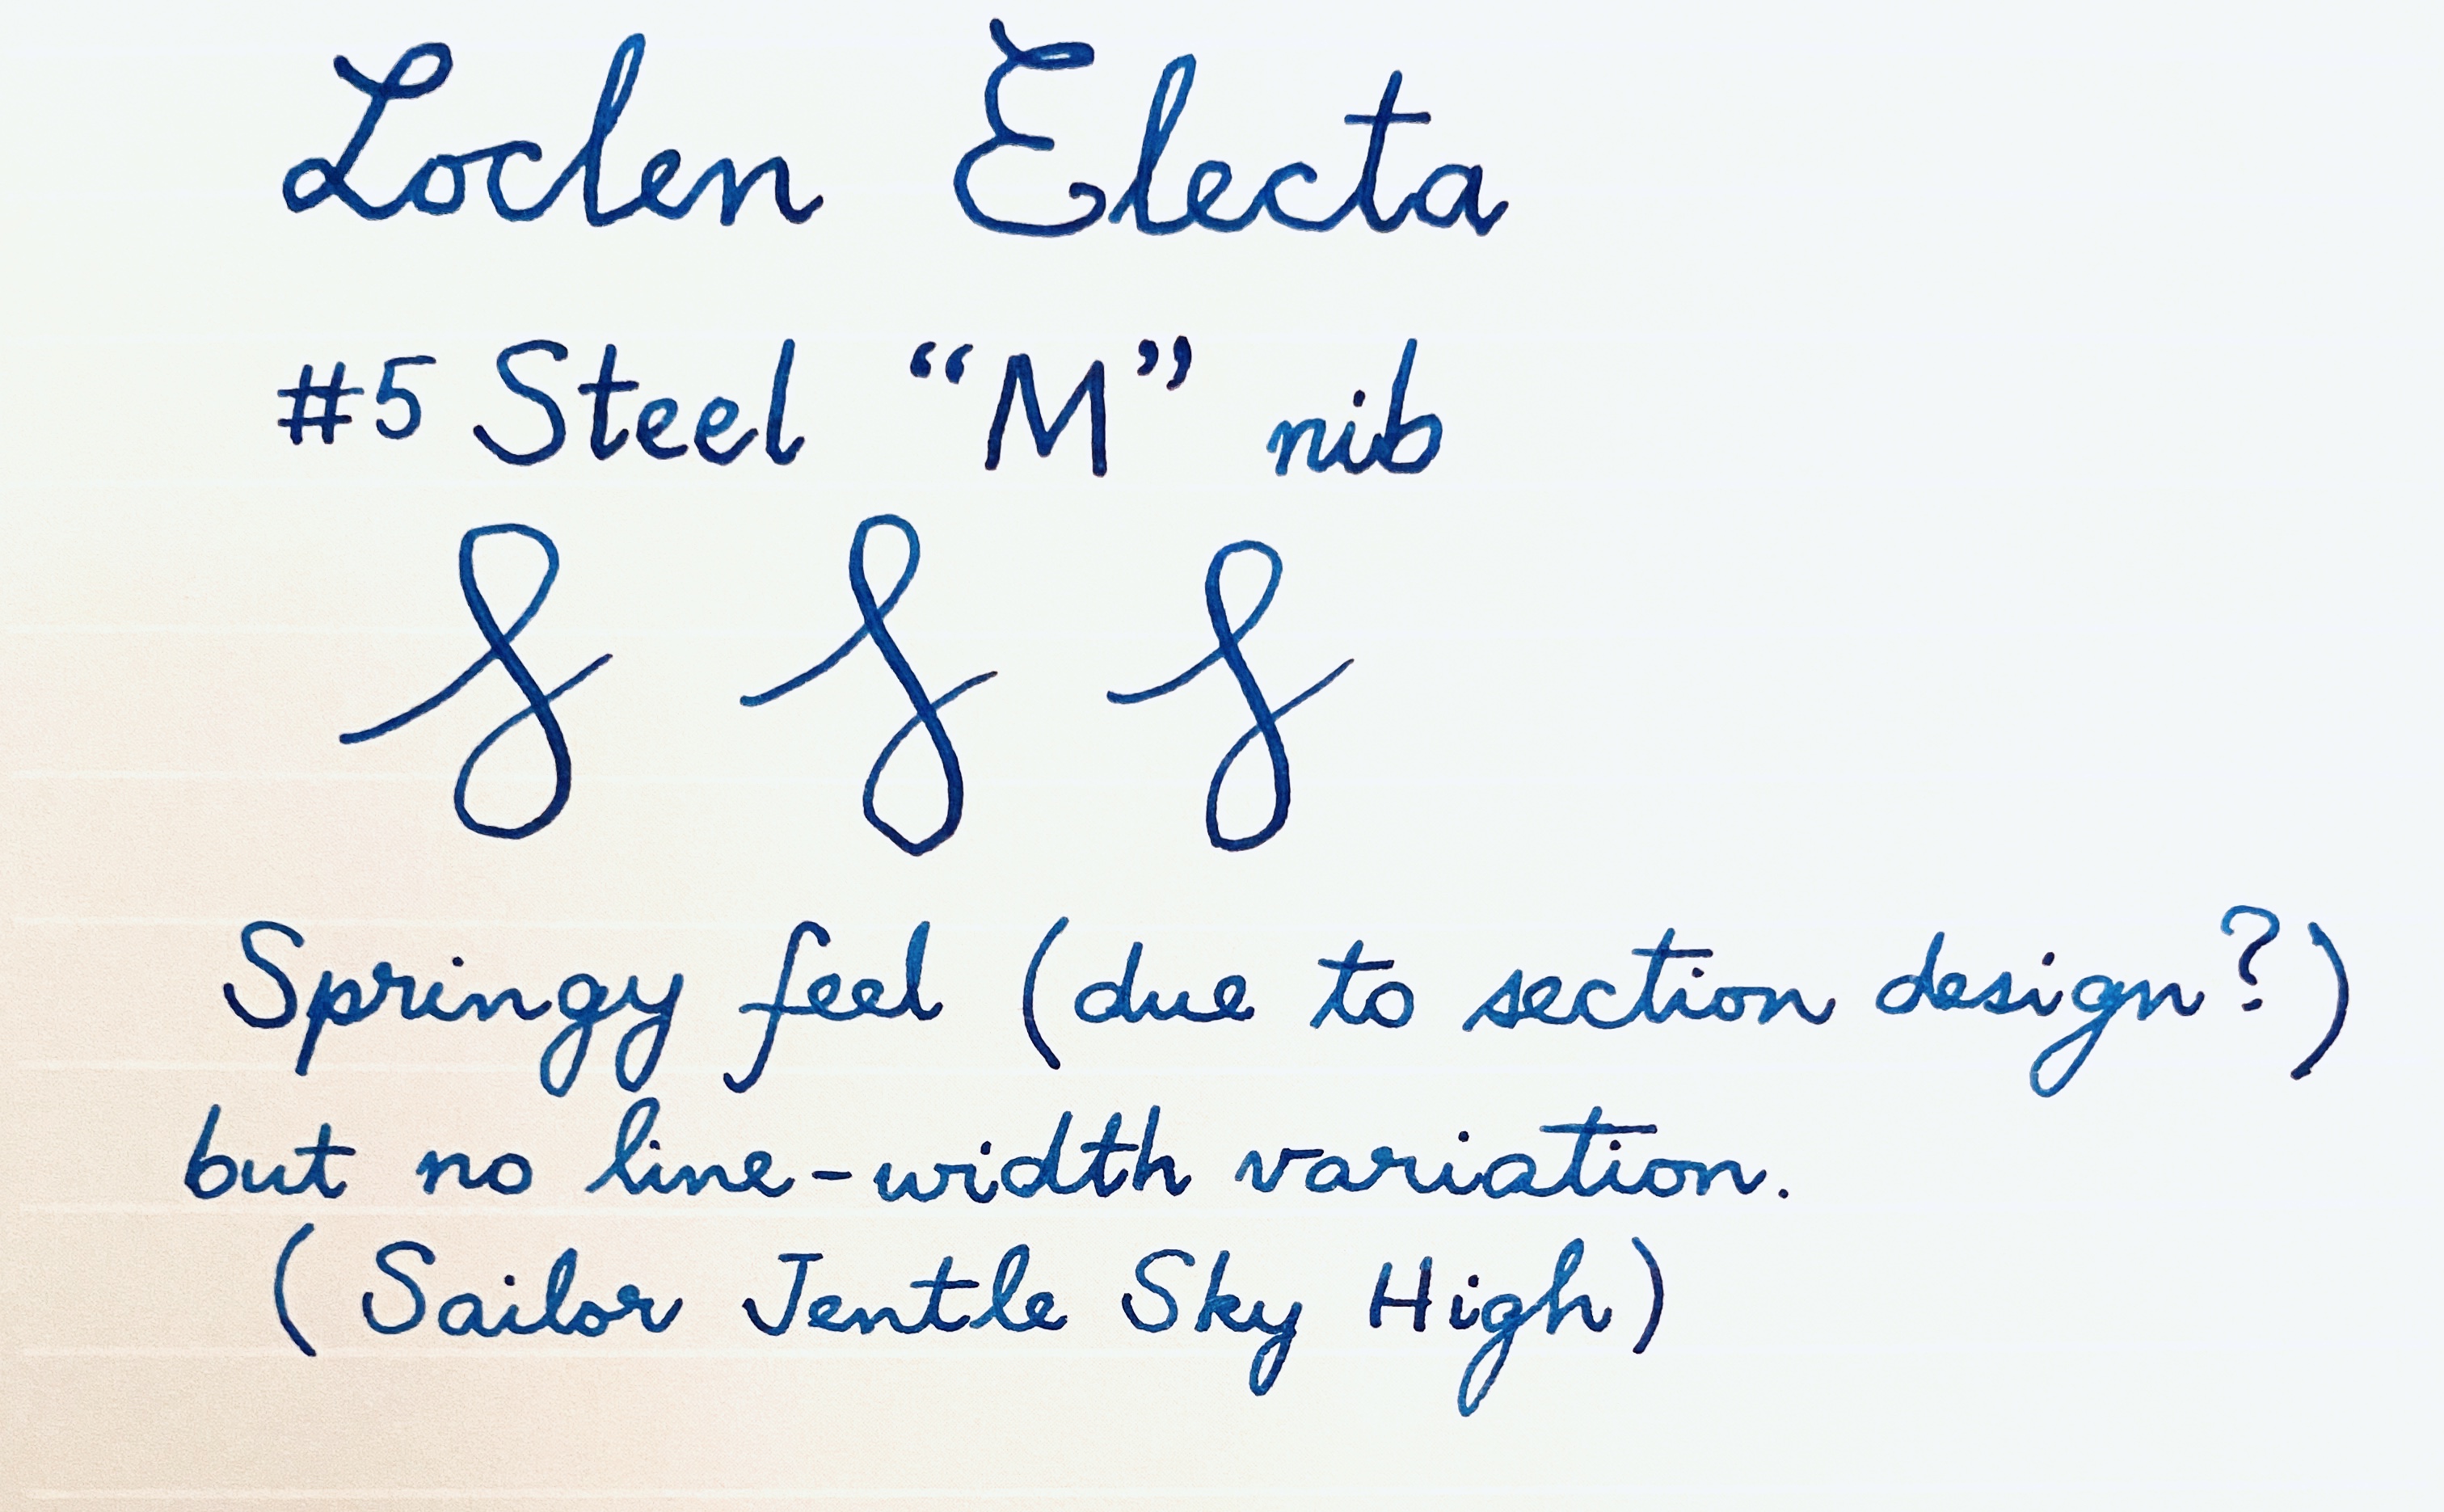 Loclen Electa
#5 Steel “M” nib
Springy feel (due to section design?)
but no line-width variation.
(Sailor Jentle Sky High)